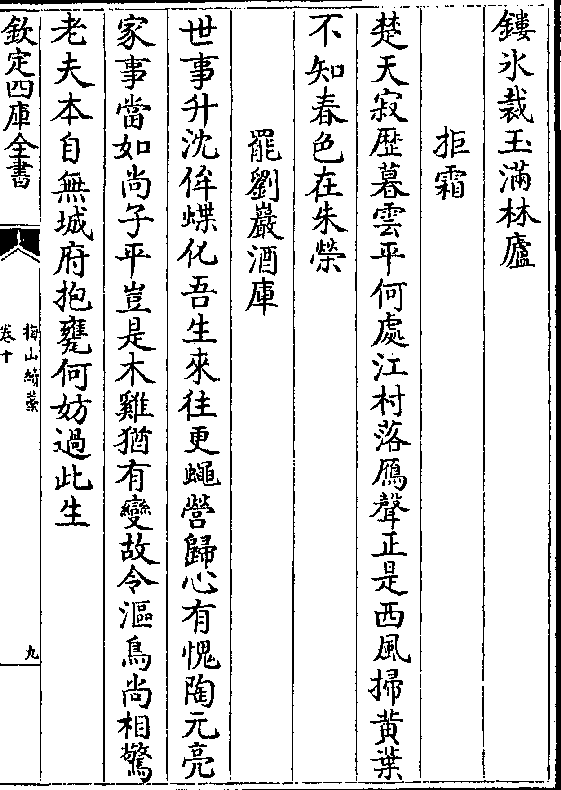 鏤氷裁玉滿林廬
拒霜
楚天寂歴暮雲平何處江村落鴈聲正是西風掃黄葉
不知春色在朱榮
罷劉巖酒庫
世事升沈侔蝶化吾生來往更蠅營歸心有愧陶元亮
家事當如尚子平豈是木雞猶有變故令漚鳥尚相驚
老夫本自無城府抱甕何妨過此生
欽定四庫全書
梅山續藁
卷十
九